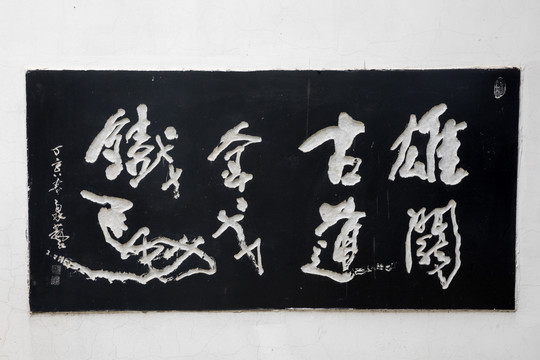 雄關
古道
金戈
鐵馬
丁亥年